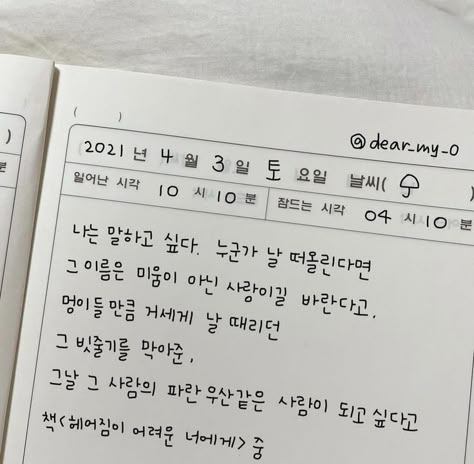 )
분
( )
@dear_my_o
2021 년 4 월 3 일 토 요일 날씨( )
일어난 시각 10 시 10 분 잠드는 시각 04 시 10 분
나는 말하고 싶다. 누군가 날 떠올린다면
그 이름은 미움이 아닌 사랑이길 바란다고.
멍이들만큼 거세게 날 때리던
그 빗줄기를 막아준,
그날 그 사람의 파란 우산같은 사람이 되고 싶다고
책 <헤어짐이 어려운 너에게> 중